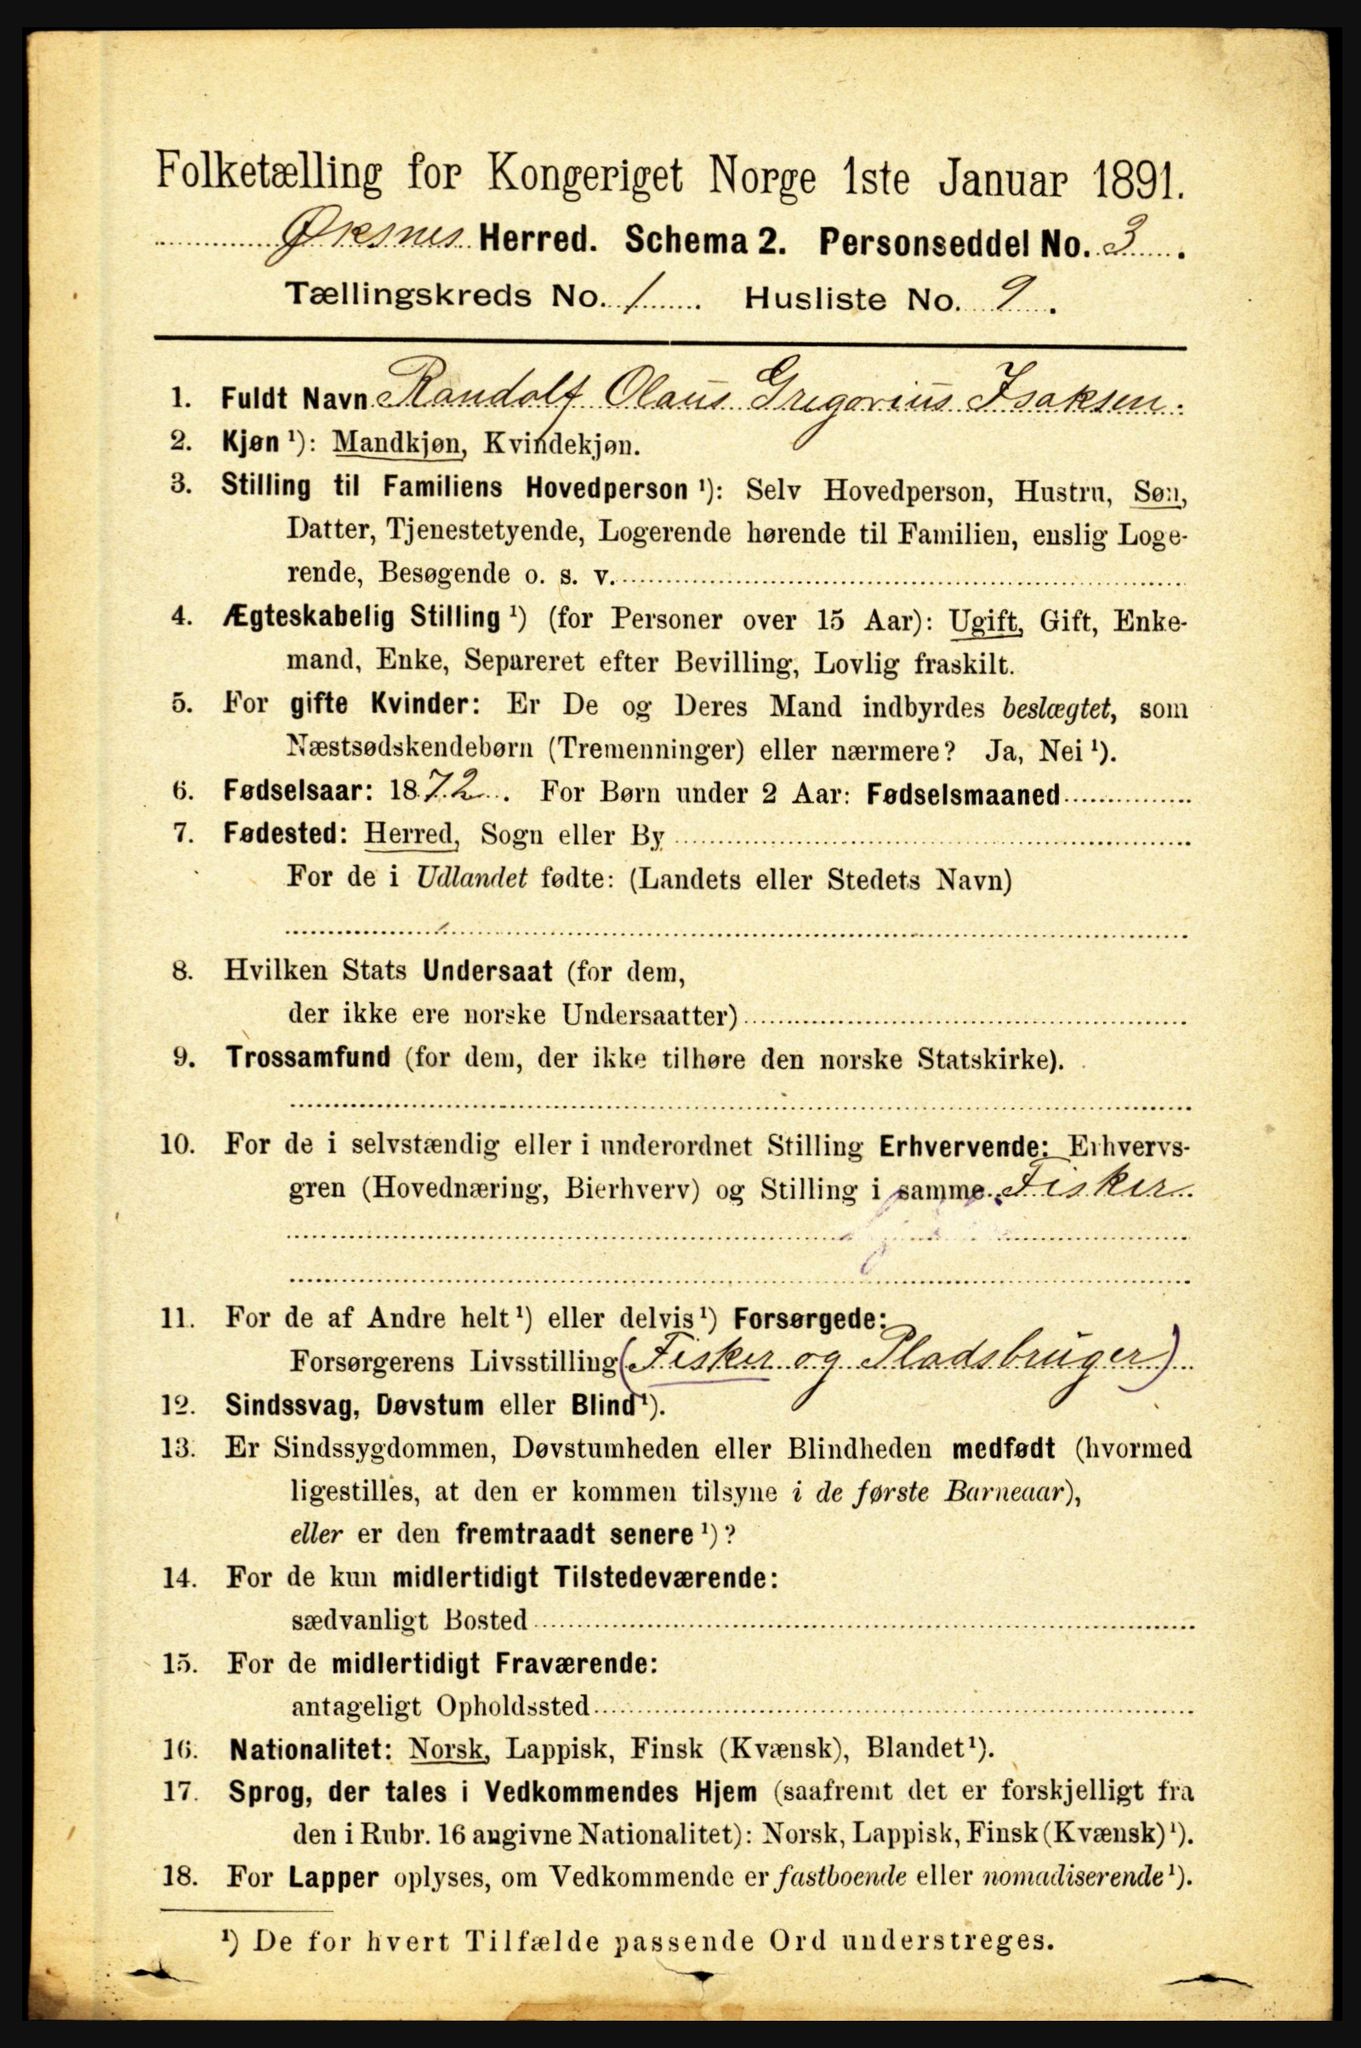 Folketælling for Kongeriget Norge 1ste Januar 1891.
Øksnes Herred. Schema 2. Personseddel No. 3.
Tællingskreds No. 1. Husliste No. 9.
1. Fuldt Navn Randolf Olaus Gregorius Isaksen.
2. Kjøn ¹): Mandkjøn, Kvindekjøn.
3. Stilling til Familiens Hovedperson ¹): Selv Hovedperson, Hustru, Søn,
Datter, Tjenestetyende, Logerende hørende til Familien, enslig Loge-
rende, Besøgende o. s. v.
4. Ægteskabelig Stilling ¹) (for Personer over 15 Aar): Ugift, Gift, Enke-
mand, Enke, Separeret efter Bevilling, Lovlig fraskilt.
5. For gifte Kvinder: Er De og Deres Mand indbyrdes beslægtet, som
Næstsødskendebørn (Tremenninger) eller nærmere? Ja, Nei ¹).
6. Fødselsaar: 1872. For Børn under 2 Aar: Fødselsmaaned
7. Fødested: Herred, Sogn eller By
For de i Udlandet fødte: (Landets eller Stedets Navn)
8. Hvilken Stats Undersaat (for dem,
der ikke ere norske Undersaatter)
9. Trossamfund (for dem, der ikke tilhøre den norske Statskirke).
10. For de i selvstændig eller i underordnet Stilling Erhvervende: Erhvervs-
gren (Hovednæring, Bierhverv) og Stilling i samme Fisker
11. For de af Andre helt ¹) eller delvis ¹) Forsørgede:
Forsørgerens Livsstilling (Fisker og Pladsbruger)
12. Sindssvag, Døvstum eller Blind ¹).
13. Er Sindssygdommen, Døvstumheden eller Blindheden medfødt (hvormed
ligestilles, at den er kommen tilsyne i de første Barneaar),
eller er den fremtraadt senere ¹)?
14. For de kun midlertidigt Tilstedeværende:
sædvanligt Bosted
15. For de midlertidigt Fraværende:
antageligt Opholdssted
16. Nationalitet: Norsk, Lappisk, Finsk (Kvænsk), Blandet ¹).
17. Sprog, der tales i Vedkommendes Hjem (saafremt det er forskjelligt fra
den i Rubr. 16 angivne Nationalitet): Norsk, Lappisk, Finsk (Kvænsk) ¹).
18. For Lapper oplyses, om Vedkommende er fastboende eller nomadiserende ¹).
¹) De for hvert Tilfælde passende Ord understreges.